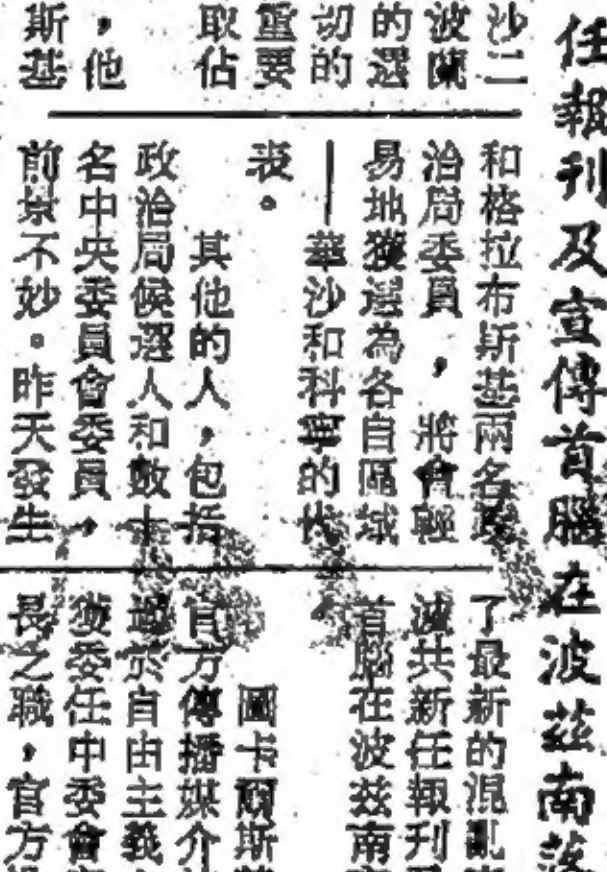 任報刊及宣傳首腦在波茲南落
沙二
波蘭
的選
切的
重要
取佔
，他
斯基
和格拉布斯基兩名
治局委員，將會輕
易地獲選為各自區域
——華沙和科寧的代
表。
其他的人，包括
政治局候選人和數十
名中央委員會委員，
前景不妙。昨天發生
了最新的混亂
波共新任報刊
首腦在波茲南
圖卡爾斯
官方傳播媒介
過於自由主義
獲委任中委會
長之職，官方